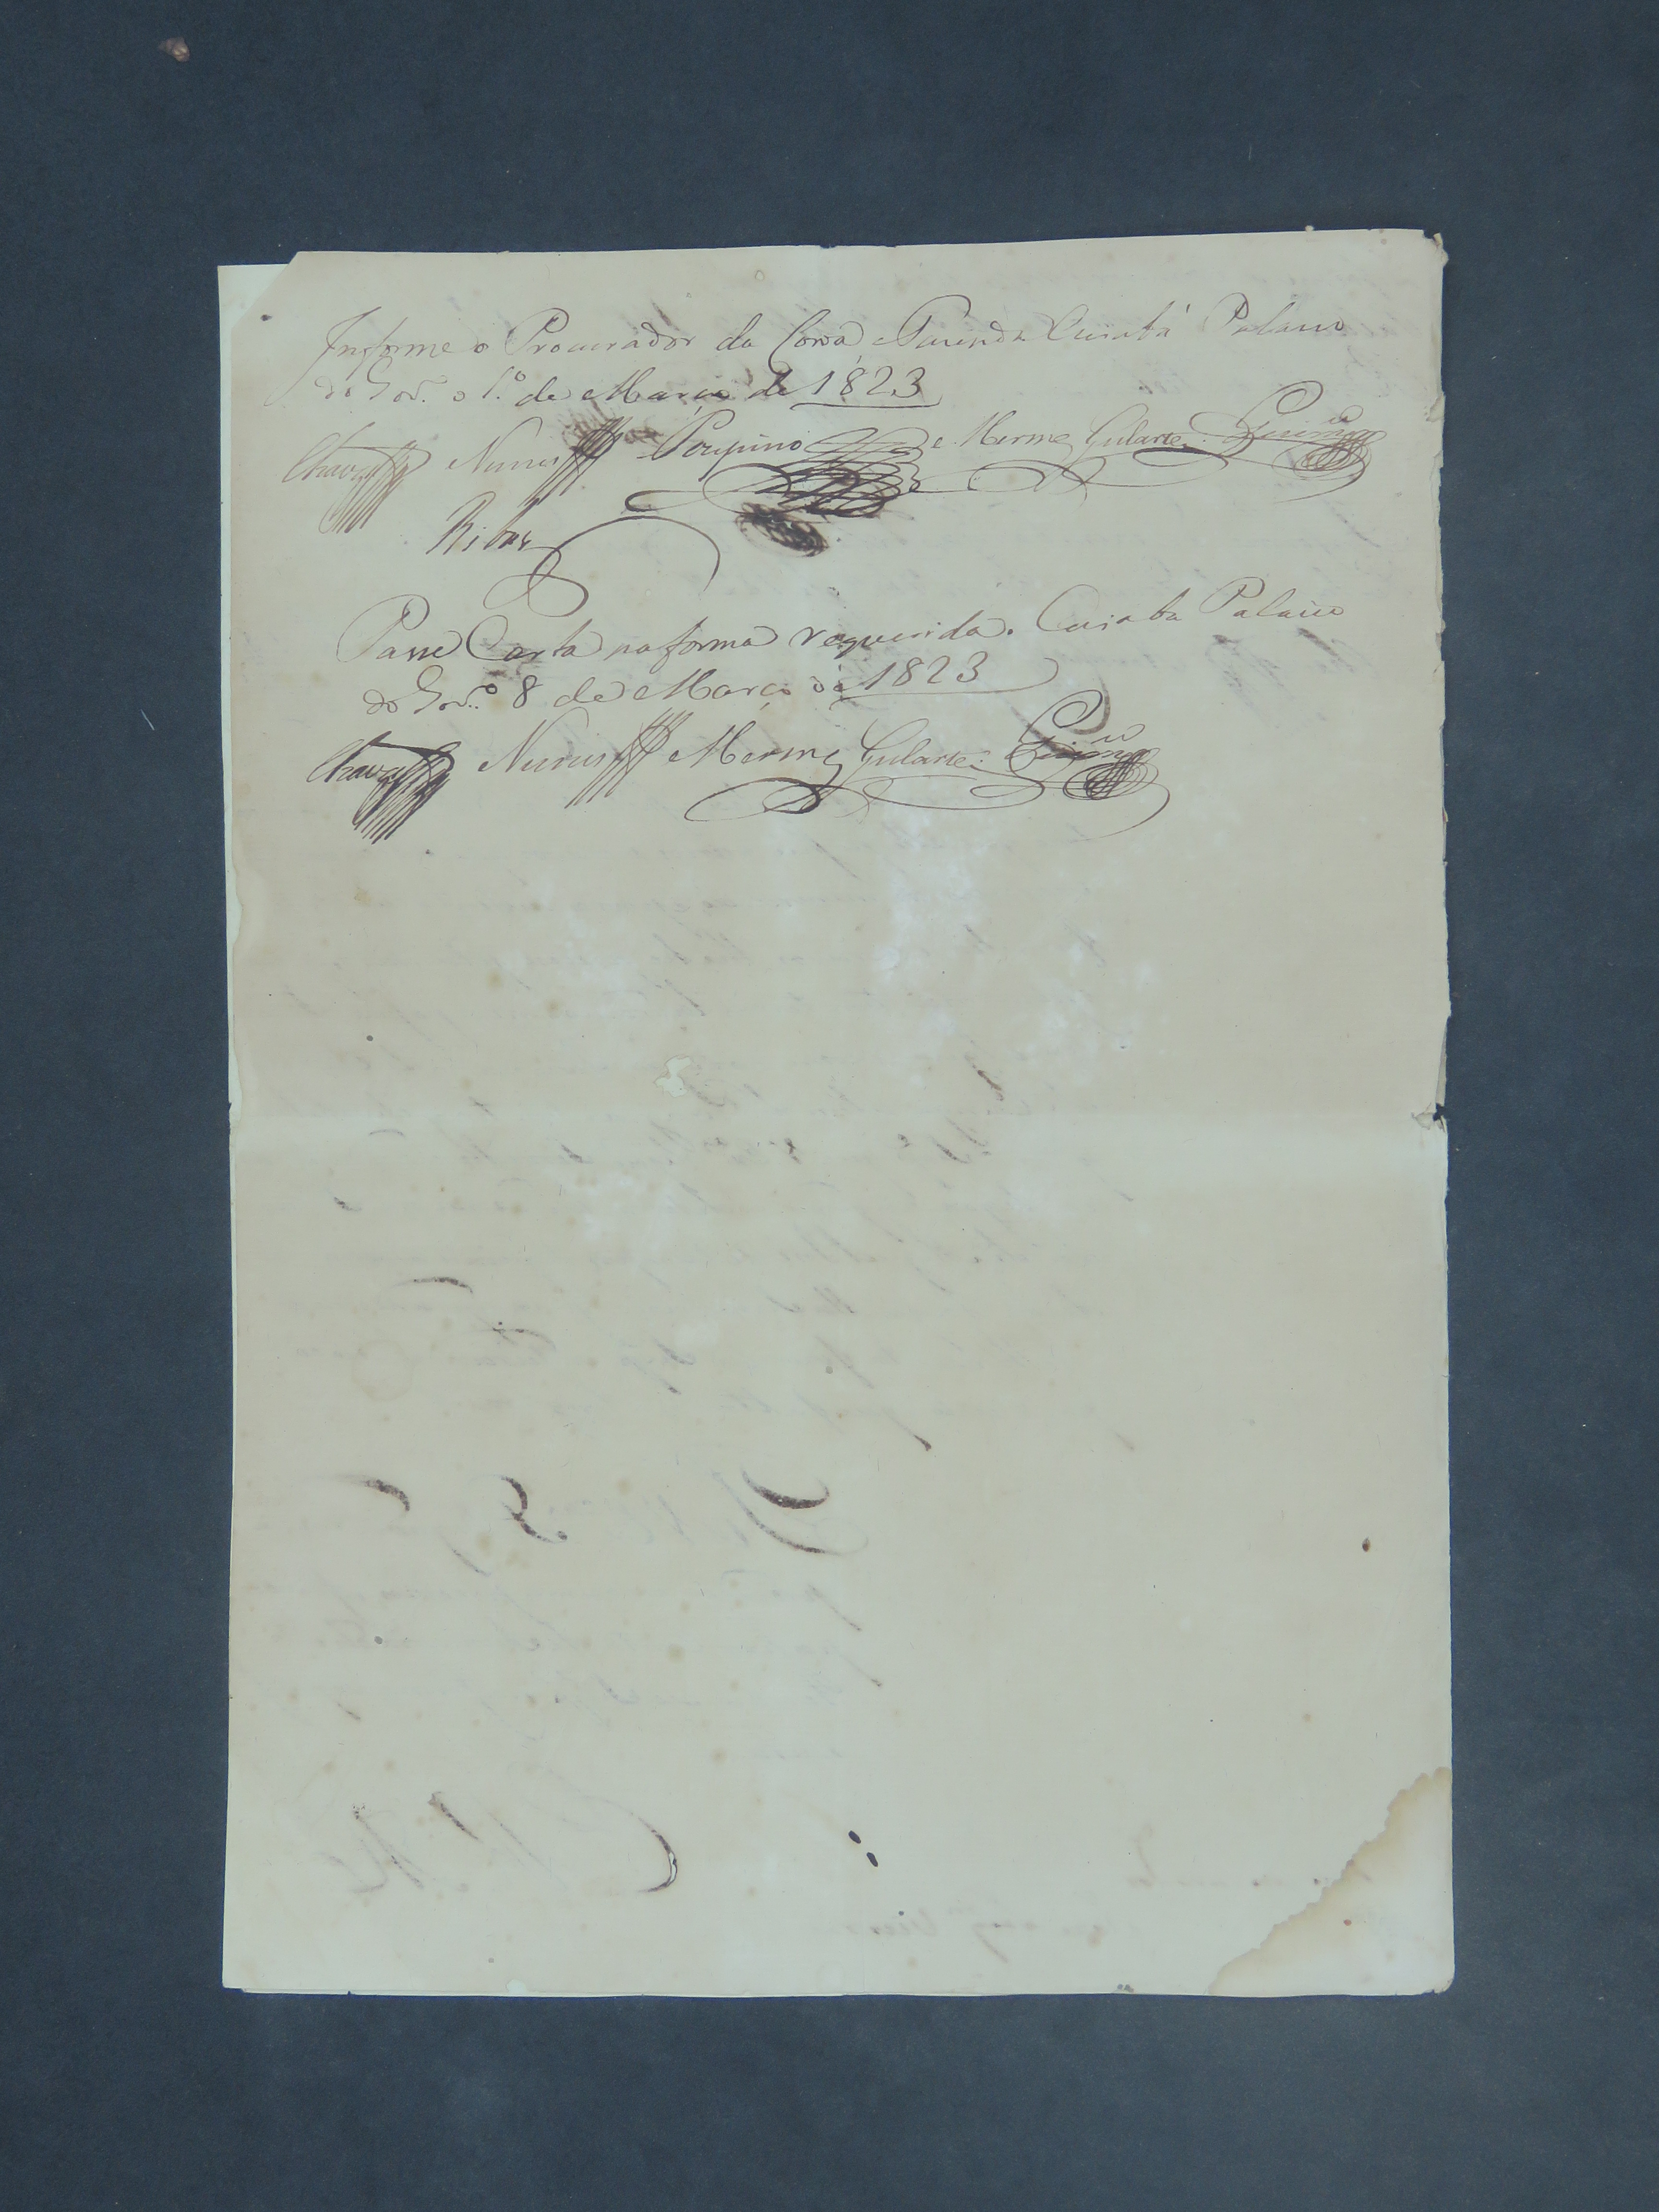 Informe o Procurador da Coroa, e Fazenda Cuiabá Palacio
do Gov.º 1.º de Março de 1823
Chaves Nunes Poupino e Merme Gularte. Jeronimo
Ribas
Passe Carta na forma requerida. Cuiaba Palacio
do Gov.º 8 de Março de 1823
Chaves Nunes Merme Gularte.